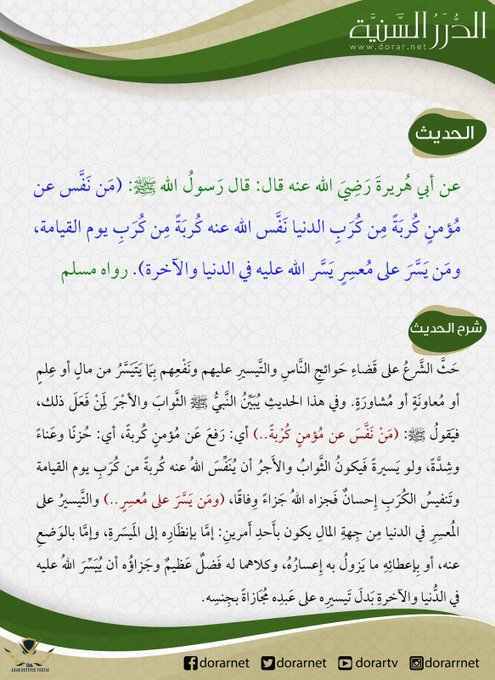 الدُّرَرُ السَّنِيَّة
www.dorar.net
الحديث
عن أبي هُريرةَ رَضِيَ الله عنه قال: قال رَسولُ الله ﷺ: (مَن نَفَّس عن
مُؤمنٍ كُربَةً مِن كُرَبِ الدنيا نَفَّس الله عنه كُربَةً مِن كُرَبِ يوم القيامة،
ومَن يَسَّرَ على مُعسِرٍ يَسَّر الله عليه في الدنيا والآخرة). رواه مسلم
شرح الحديث
حَثَّ الشَّرعُ على قَضاءِ حَوائجِ النَّاسِ والتَّيسيرِ عليهم ونَفْعِهم بِمَا يَتَيَسَّرُ من مالٍ أو عِلمٍ
أو مُعاونَةٍ أو مُشاورَةٍ. وفي هذا الحديثِ يُبَيِّنُ النَّبيُّ ﷺ الثَّوابَ والأجْرَ لِمَنْ فَعَلَ ذلك،
فيَقولُ ﷺ: (مَنْ نَفَّسَ عن مُؤمنٍ كُرْبةً..) أي: رَفعَ عَن مُؤمنٍ كُربةً، أي: حُزنًا وعَناءً
وشِدَّةً، ولو يَسيرةً فَيكونُ الثَّوابُ والأجرُ أن يُنَفِّسَ اللهُ عنه كُربةً من كُرَبِ يوم القيامة
وتَنفيسُ الكُرَبِ إحسانٌ فَجزاه اللهُ جَزاءً وِفاقًا، (ومَن يَسَّرَ على مُعسِرٍ..) والتَّيسيرُ على
المُعسِرِ في الدنيا مِن جِهةِ المالِ يكون بأَحدِ أَمرينِ: إمَّا بإنظَارِه إلى المَيسَرةِ، وإمَّا بالوَضعِ
عنه، أو بإعطائِهِ ما يَزولُ به إعسارُهُ، وكلاهما له فَضلٌ عَظيمٌ وجَزاؤُه أن يُيَسِّرَ اللهُ عليه
في الدُّنيا والآخرةِ بَدلَ تَيسيرِه على عَبدِه مُجَازاةً بجِنسِه.
ARAB DEFENSE FORUM
dorarnet
dorarnet
dorartv
dorarrnet